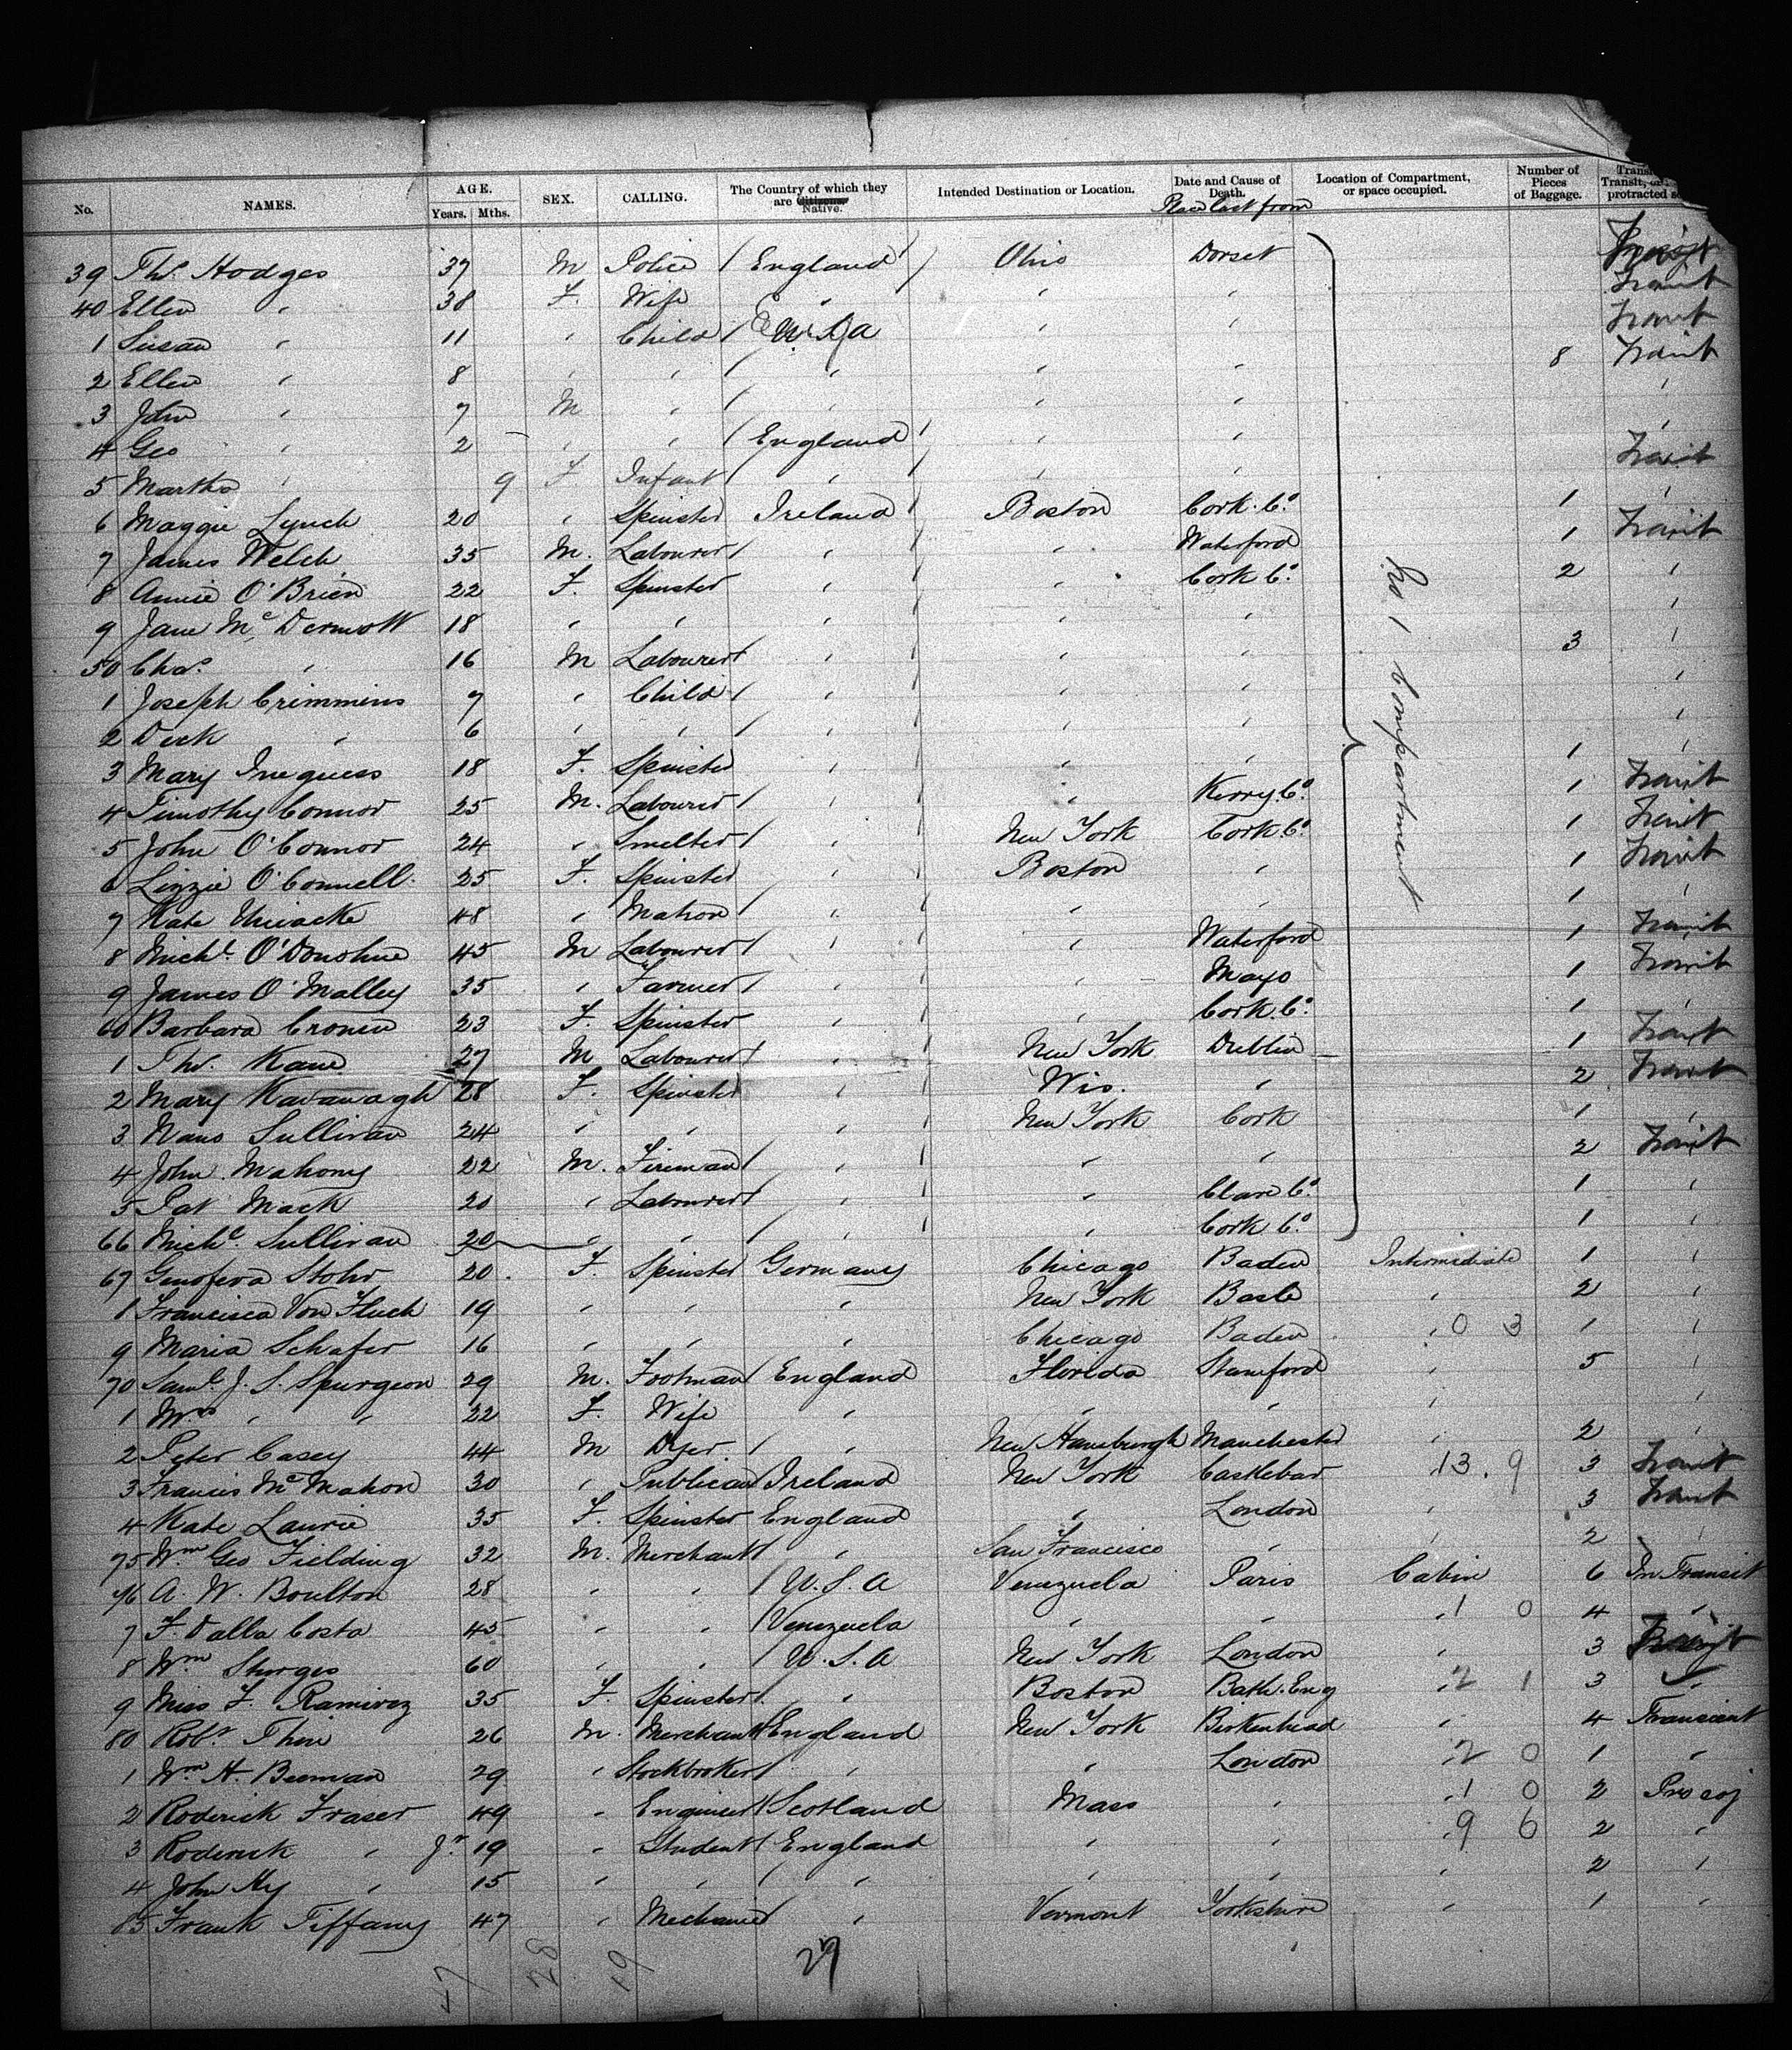 No. NAMES. AGE. Years. Mths. SEX. CALLING. The Country of which they are Native. Intended Destination or Location. Date and Cause of Death. Place last from Location of Compartment, or space occupied. Number of Pieces of Baggage. Transit,
39 Thos. Hodges 37 M Police England Ohio Dorset Transit
40 Ellen " 38 F. Wife " " " Transit
1 Susan " 11 " Child U.S.A " " Transit
2 Ellen " 8 " " " " " 8 Transit
3 John " 7 M " " " " "
4 Geo " 2 " " England " " "
5 Martha " 9 F Infant " " " Transit
6 Maggie Lynch 20 " Spinster Ireland Boston Cork Co. 1 "
7 James Welch 35 M. Labourer " " Waterford 1 Transit
8 Annie O'Brien 22 F. Spinster " " Cork Co. 2 "
9 Jane McDermott 18 " " " " " "
50 Chas. " 16 M Labourer " " " 3 "
1 Joseph Crimmins 7 " Child " " " "
2 Dick " 6 " " " " " "
3 Mary 18 F. Spinster " " " 1 "
4 Timothy Connor 25 M. Labourer " " Kerry Co. 1 Transit
5 John O'Connor 24 " Smelter " New York Cork Co. 1 Transit
6 Lizzie O'Connell 25 F. Spinster " Boston " 1 Transit
7 Kate 48 " Matron " " " 1 "
8 Michl. O'Donohue 45 M Labourer " " Waterford 1 Transit
9 James O'Malley 35 " Farmer " " Mayo 1 Transit
60 Barbara Cronin 23 F. Spinster " " Cork Co. 1 "
1 Thos. Kane 27 M Labourer " New York Dublin 1 Transit
2 Mary Kavanagh 28 F. Spinster " Wis. " 2 Transit
3 Nano Sullivan 24 " " " New York Cork 1 "
4 John Mahony 22 M. Fireman " " " 2 Transit
5 Pat Mack 20 " Labourer " " Clare Co. 1 "
66 Michl. Sullivan 20 " " " " Cork Co. 1 "
No 1 Compartment
67 Genofeva Stohr 20 F. Spinster Germany Chicago Baden Intermediate 1 "
1 Francisca Von Fluch 19 " " " New York Basle " 2 "
9 Maria Schafer 16 " " " Chicago Baden " 0 3 1 "
70 Saml. J. S. Spurgeon 29 M. Footman England Florida Stamford " 5 "
1 Mrs " " 22 F. Wife " " " " "
2 Peter Casey 44 M Dyer " New Hamburgh Manchester " 2 "
3 Francis McMahon 30 " Publican Ireland New York Castlebar 13 . 9 3 Transit
4 Kate Laurie 35 F. Spinster England " London " 3 Transit
75 Wm Geo Fielding 32 M. Merchant " San Francisco " " 2 "
76 A. W. Boulton 28 " " U.S.A Venezuela Paris Cabin 6 In Transit
7 F. Dalla Costa 45 " " Venezuela " " " 1 0 4 "
8 Wm Sturges 60 " " U.S.A New York London " 3 Transit
9 Miss F. Ramirez 35 F. Spinster " Boston Bath. Eng 2 1 3 "
80 Robt. Thin 26 M. Merchant England New York Birkenhead " 4 Transient
1 Wm H. Beeman 29 " Stockbroker " " London 2 0 1 "
2 Roderick Fraser 49 " Engineer Scotland Mass " 1 0 2 Pro soj
3 Roderick " Jr. 19 " Student England " " 9 6 2 "
4 John Hy " 15 " " " " " " 2 "
85 Frank Tiffany 47 " Mechanic " Vermont Yorkshire " 1 "
47 28 19 29